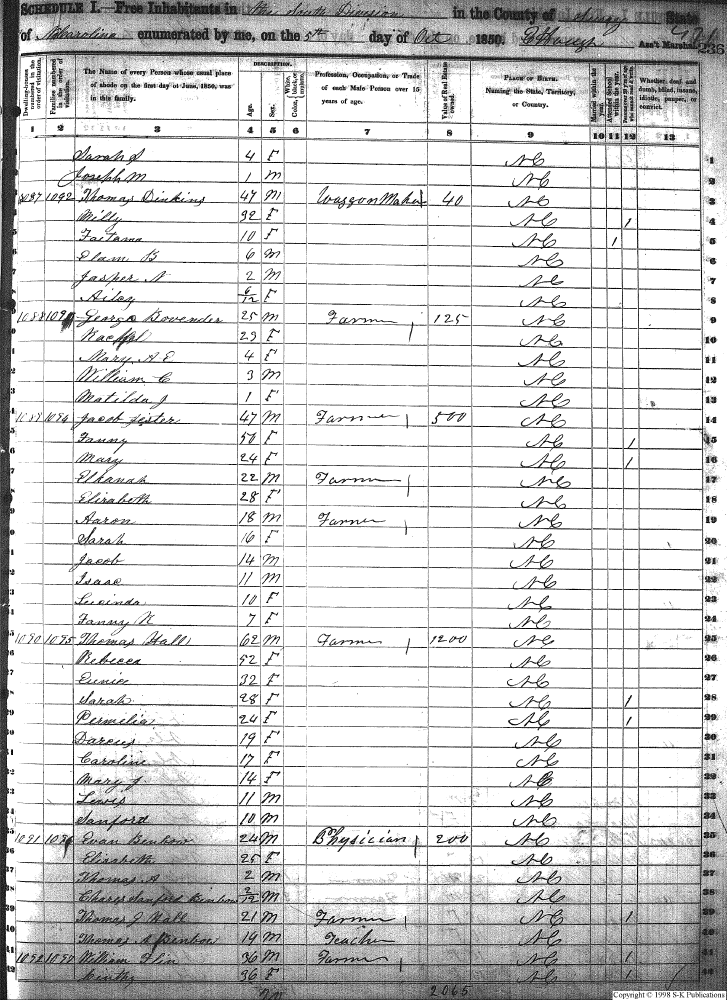 SCHEDULE I.—Free Inhabitants in the South Division in the County of Surry State
of N Carolina enumerated by me, on the 5th day of Oct 1850. Ass't Marshal.
Dwelling-houses numbered in the order of visitation.
Families numbered in the order of visitation.
The Name of every Person whose usual place of abode on the first day of June, 1850, was in this family.
DESCRIPTION.
Age.
Sex.
White, black, or mulatto.
Color
Profession, Occupation, or Trade of each Male Person over 15 years of age.
Value of Real Estate owned.
PLACE OF BIRTH.
Naming the State, Territory, or Country.
Married within the year.
Attended School within the year.
Whether deaf and dumb, blind, insane, idiotic, pauper, or convict.
1 2 3 4 5 6 7 8 9 10 11 12 13
Sarah S 4 F NC 1
Joseph M 1 M NC 2
1087 1092 Thomas Dinkins 47 M Waggon Maker 40 NC 3
Milly 32 F NC 1 4
10 F NC 1 5
Elam B 6 M NC 6
Jasper N 2 M NC 7
Ailcy 6/12 F NC 8
1088 1093 George Bovender 25 M Farmer 125 NC 9
Rachel 23 F NC 10
Mary A E 4 F NC 11
William C 3 M NC 12
Matilda J 1 F NC 13
1089 1094 Jacob 47 M Farmer 500 NC 14
Fanny 50 F NC 1 15
Mary 24 F NC 1 16
Elkanah 22 M Farmer NC 17
Elizabeth 28 F NC 18
Aaron 18 M Farmer NC 19
Sarah 16 F NC 20
Jacob 14 M NC 21
Isaac 11 M NC 22
Lucinda 10 F NC 23
Fanny N 7 F NC 24
1090 1095 Thomas Hall 62 M Farmer 1200 NC 25
Rebecca 52 F NC 26
Eunice 32 F NC 27
Sarah 28 F NC 1 28
Permelia 24 F NC 1 29
Darcus 19 F NC 30
Caroline 17 F NC 31
Mary J 14 F NC 32
Lewis 11 M NC 33
Sanford 10 M NC 34
1091 1096 Evan Benbow 24 M Physician 200 NC 35
Elizabeth 25 F NC 36
Thomas A 2 M NC 37
Sanford Benbow 2/12 M NC 38
Thomas J Hall 21 M Farmer NC 1 39
Thomas Benbow 19 M Teacher NC 40
1092 1097 William Flin 36 M Farmer NC 1 41
36 F NC 1 42
2065
Copyright © 1998 S-K Publications